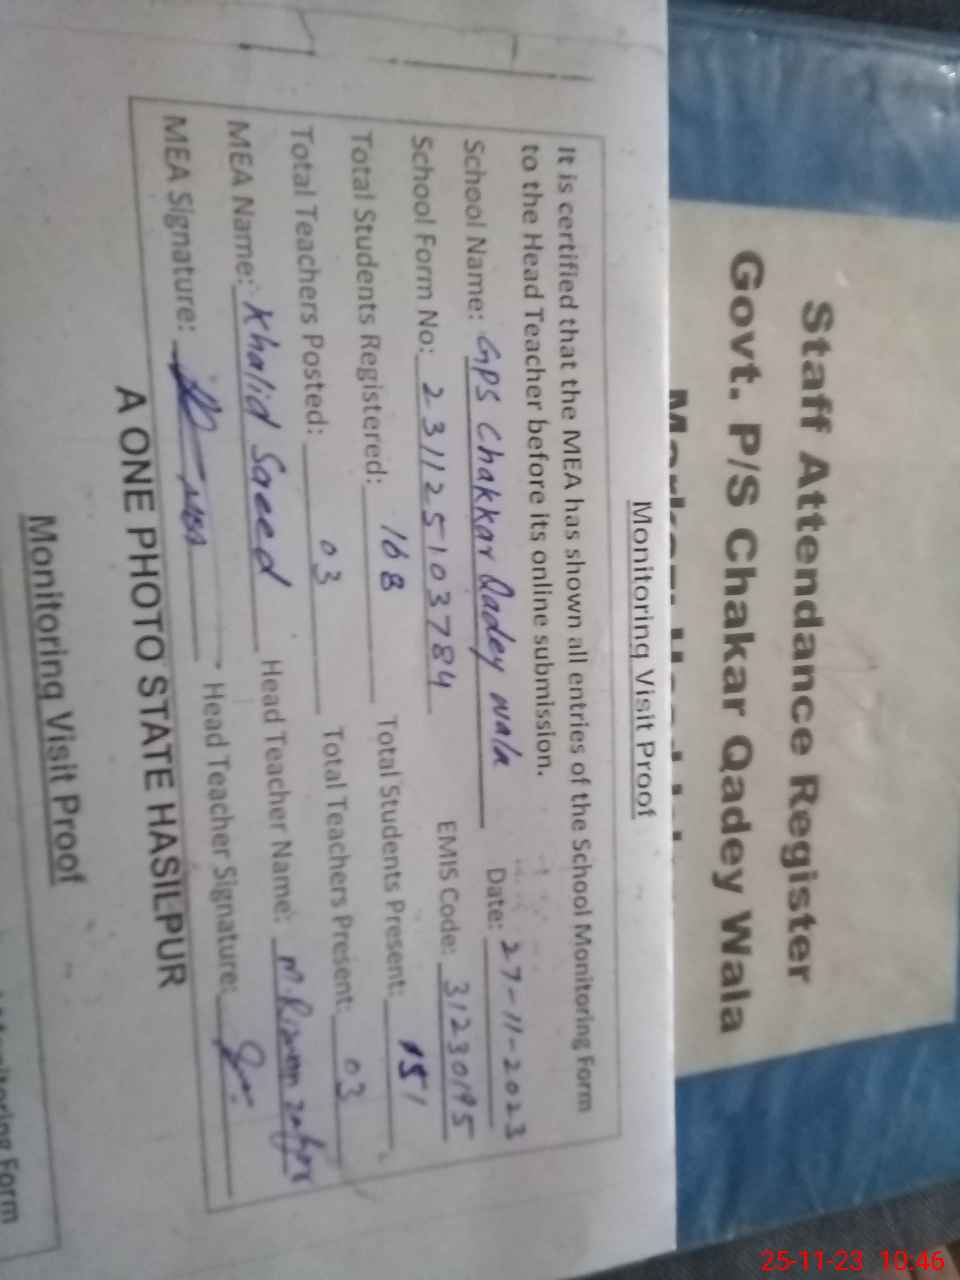 Staff Attendance Register
Govt. P/S Chakar Qadey Wala
Monitoring Visit Proof
It is certified that the MEA has shown all entries of the School Monitoring Form
to the Head Teacher before its online submission.
Date: 27-11-2023
School Name: GPS Chakkar Qadey wala
School Form No: 231125103784 EMIS Code: 31230195
Total Students Registered: 168 Total Students Present: 151
Total Teachers Posted: 03 Total Teachers Present: 03
MEA Name: Khalid Saeed Head Teacher Name: M. Rizwan
MEA Signature: Head Teacher Signature:
A ONE PHOTO STATE HASILPUR
Monitoring Visit Proof
Monitoring Form
25-11-23 10:46